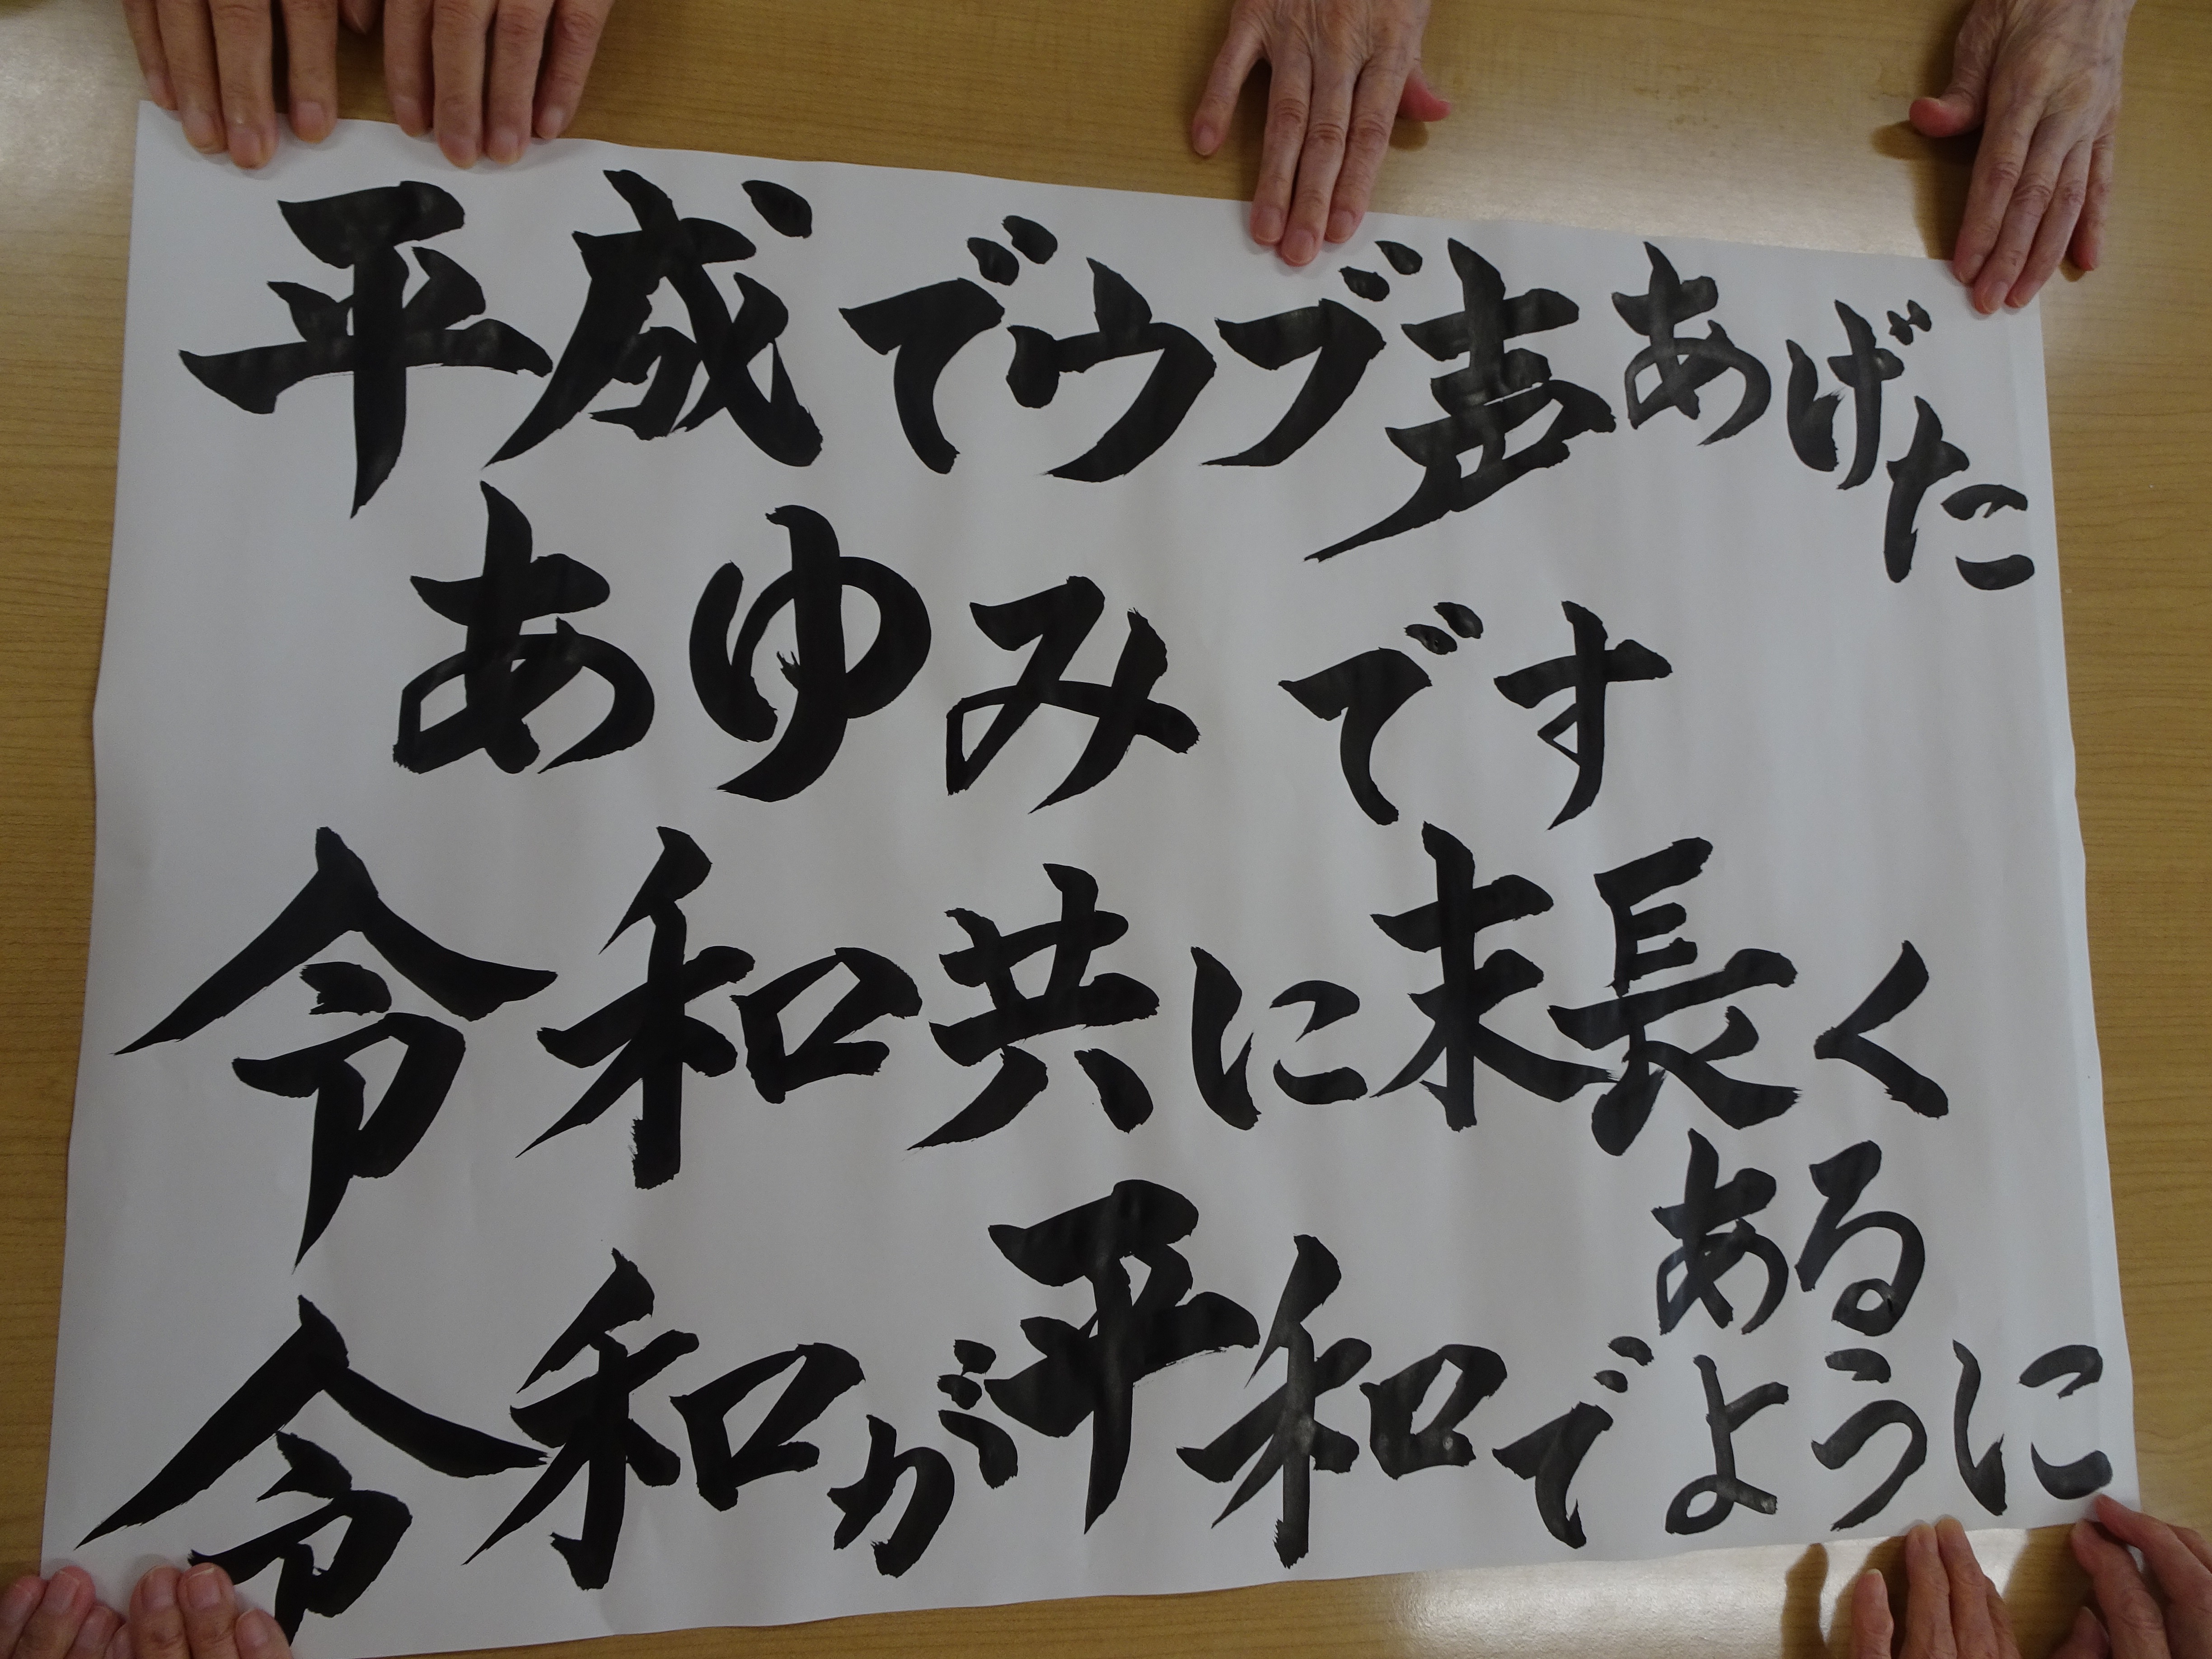 平成でウブ声あげた
あゆみです
令和共に末長く
令和が平和で
あるように